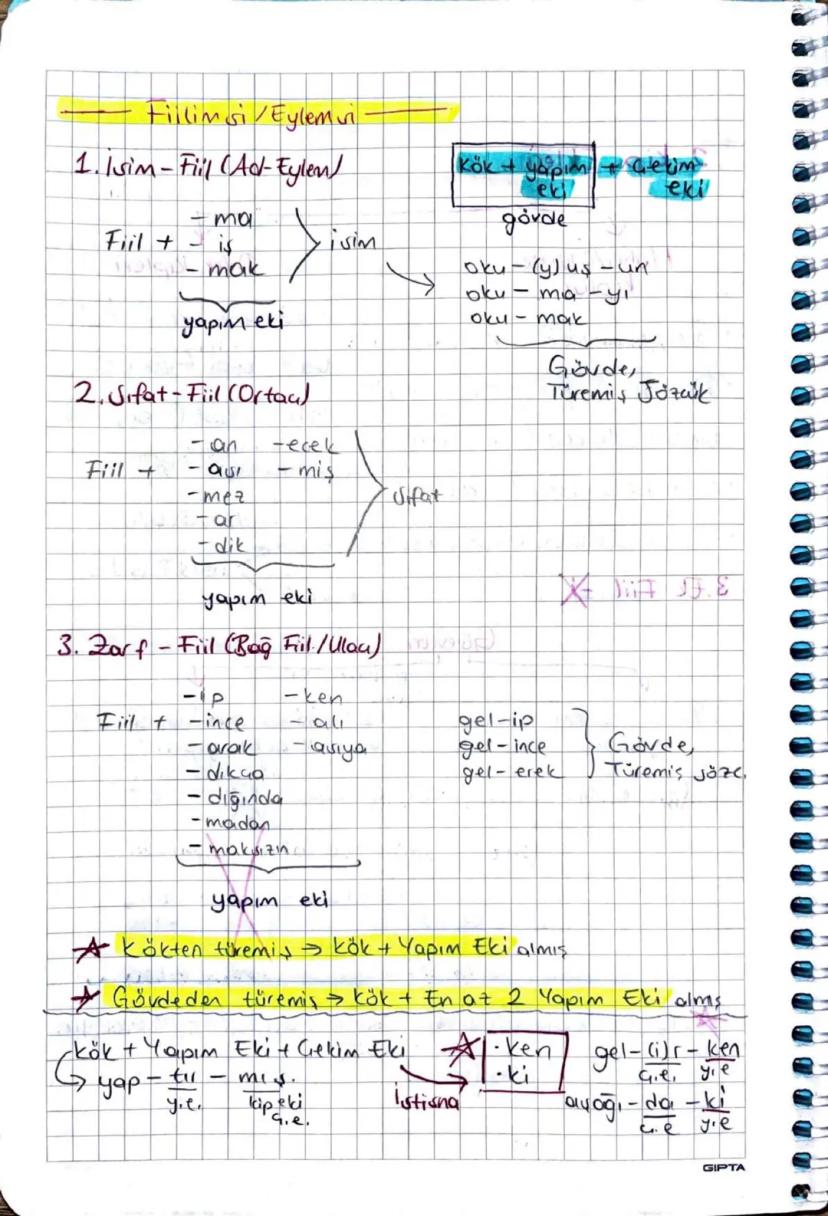 Fiilimsi / Eylemsi
1. İsim - Fiil (Ad-Eylem)
Kök + yapım eki + Çekim eki
gövde
Fiil +
- ma
- iş
- mak
isim
yapım eki
oku - (y)uş - un
oku - ma - yı
oku - mak
Gövde,
Türemiş Sözcük
2. Sıfat - Fiil (Ortaç)
Fiil +
- an - ecek
- ası - miş
- mez
- ar
- dik
sıfat
yapım eki
3. Zarf - Fiil (Bağ Fiil / Ulaç)
Fiil +
- ip - ken
- ince - alı
- arak - asıya
- dıkça
- dığında
- madan
- maksızın
yapım eki
gel - ip
gel - ince
gel - erek
Gövde,
Türemiş sözc.
Kökten türemiş → Kök + Yapım Eki almış
Gövdeden türemiş → Kök + En az 2 Yapım Eki almış
Kök + Yapım Eki + Çekim Eki
yap - tır - mış.
y.e. kip eki
ç.e.
istisna
· ken
· ki
gel - (i)r - ken
ç.e. y.e
ayağı - da - ki
ç.e y.e
GIPTA